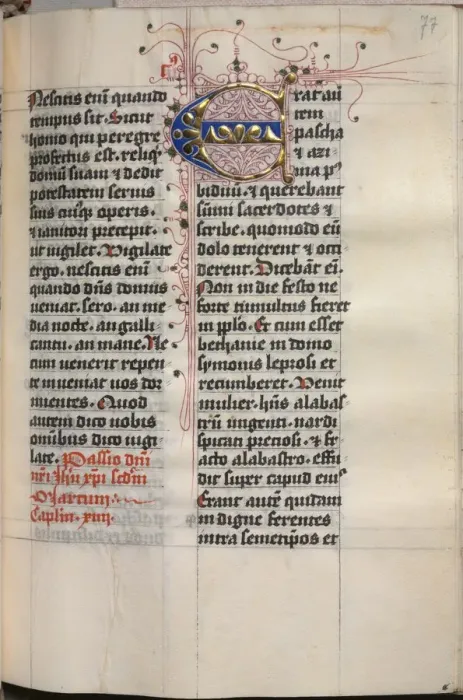 77
Nescitis enī quando
tempus sit. Sicut
homo qui peregre
profectus est. reliq̄
domū suam ⁊ dedit
potestatem seruis
suis cuiusq; operis.
⁊ ianitori precepit.
ut vigilet. Vigilate
ergo. nescitis enī
quando dn̄s domus
ueniat. sero. an me
dia nocte. an galli
cantu. an mane. Ne
cum uenerit repen
te inueniat uos dor
mientes. Quod
autem dico uobis
omībus dico uigi
late. Passio dn̄i
nr̄i ihū xp̄i scd̄m
Marcum.
Caplm̄. xiiii.
Erat aū
tem
pascha
⁊ azi
ma p⁹
biduū. ⁊ querebant
sūmi sacerdotes ⁊
scribe. quomodo eū
dolo tenerent ⁊ occi
derent. Dicebāt eī.
Non in die festo ne
forte tumultus fieret
in pplo. Et cum esset
bethanie in domo
symonis leprosi et
recumberet. Venit
mulier. hn̄s alabas
trū ungenti. nardi
spicati preciosi. ⁊ fr
acto alabastro. effu
dit super capud eiꝰ
Erant autē quidam
in digne ferentes
intra semetip̄os et